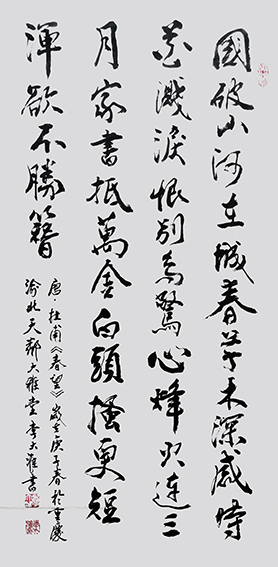 國破山河在城春草木深感時
花濺淚恨别鳥驚心烽火连三
月家書抵萬金白頭搔更短
渾欲不勝簪
唐·杜甫《春望》歲在庚子春於重慶
渝北天鄰大雅堂李大雅書